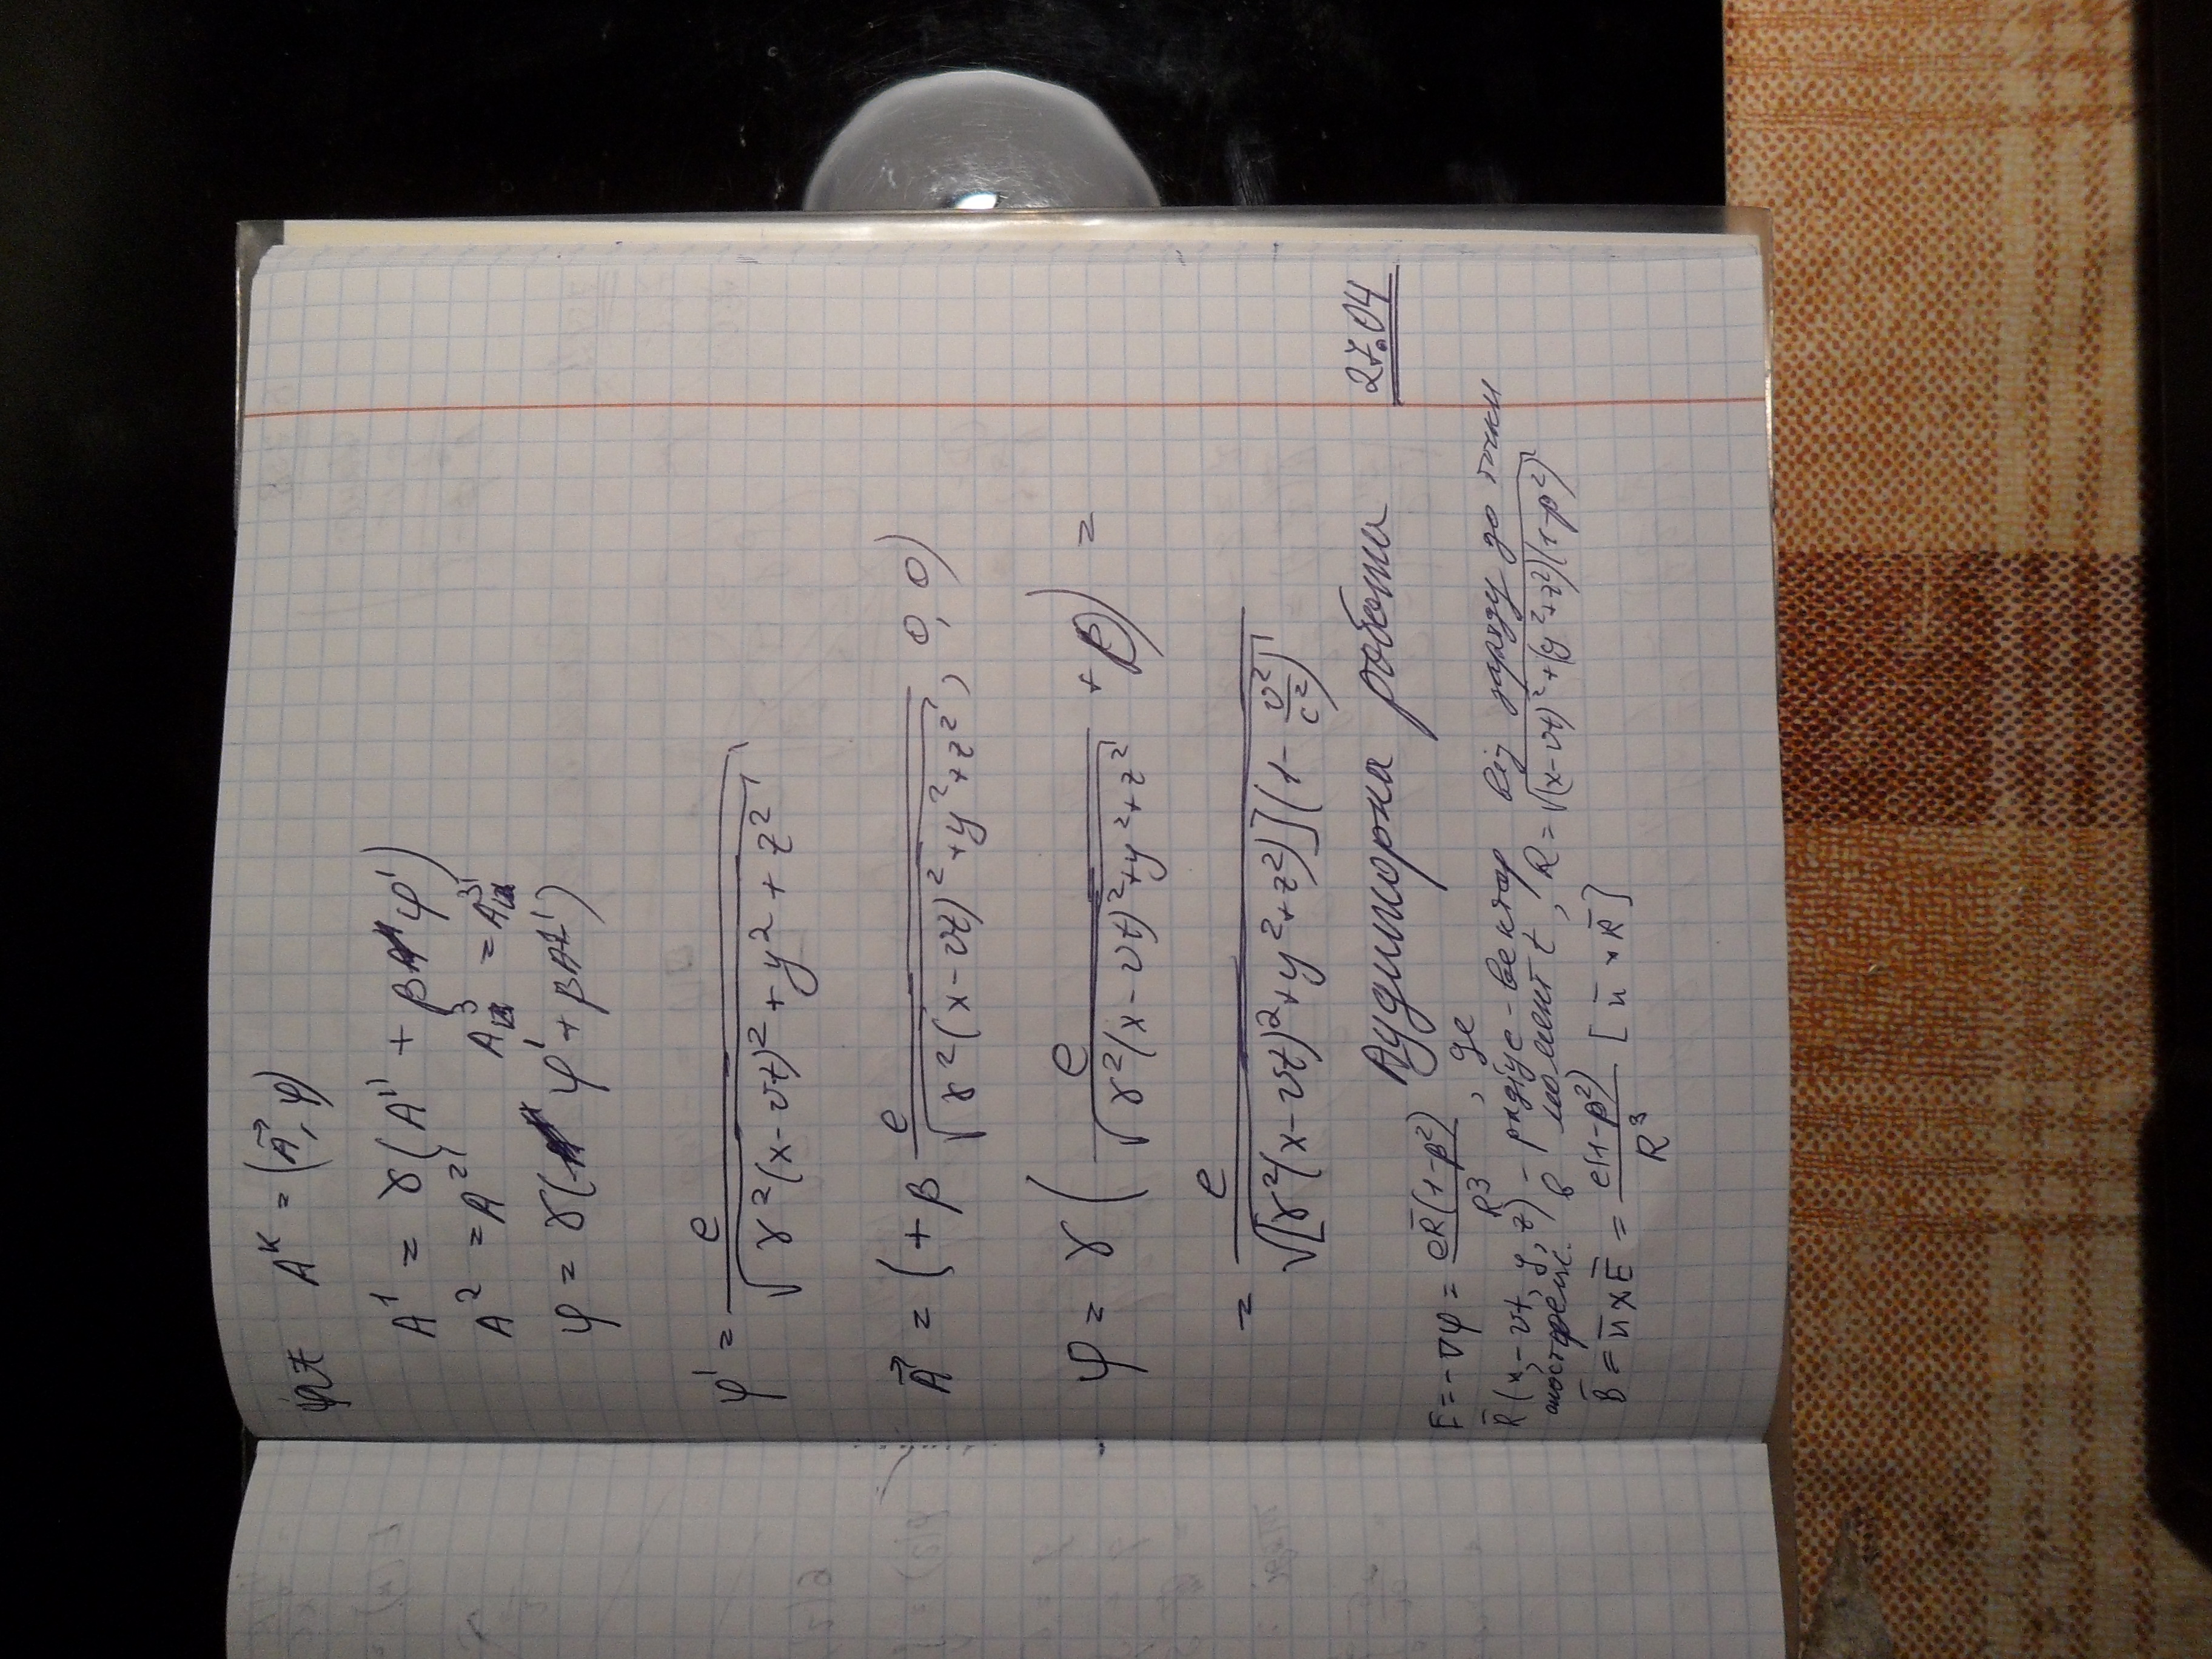 A^k = (A⃗, φ)
A¹ = γ(A¹' + βφ')
A² = A²' A³ = A³'
φ = γ(φ' + βA¹')
φ' = e / √(γ²(x-vt)² + y² + z²)
A⃗ = (+ β e / √(γ²(x-vt)² + y² + z²), 0, 0)
φ = γ ( e / √(γ²(x-vt)² + y² + z²) + β) =
= e / √([γ²(x-vt)² + y² + z²)](1 - v²/c²))
27.04
Аудиторна робота
E̅ = -∇φ = eR̅(1-β²) / R³, де
R̅(x-vt, y, z) - радіус-вектор від заряду до точки
спостереж. в момент t, R = √((x-vt)² + (y²+z²)(1-β²))
B̅ = u̅ x E̅ = e(1-β²) / R³ [u̅ x R̅]